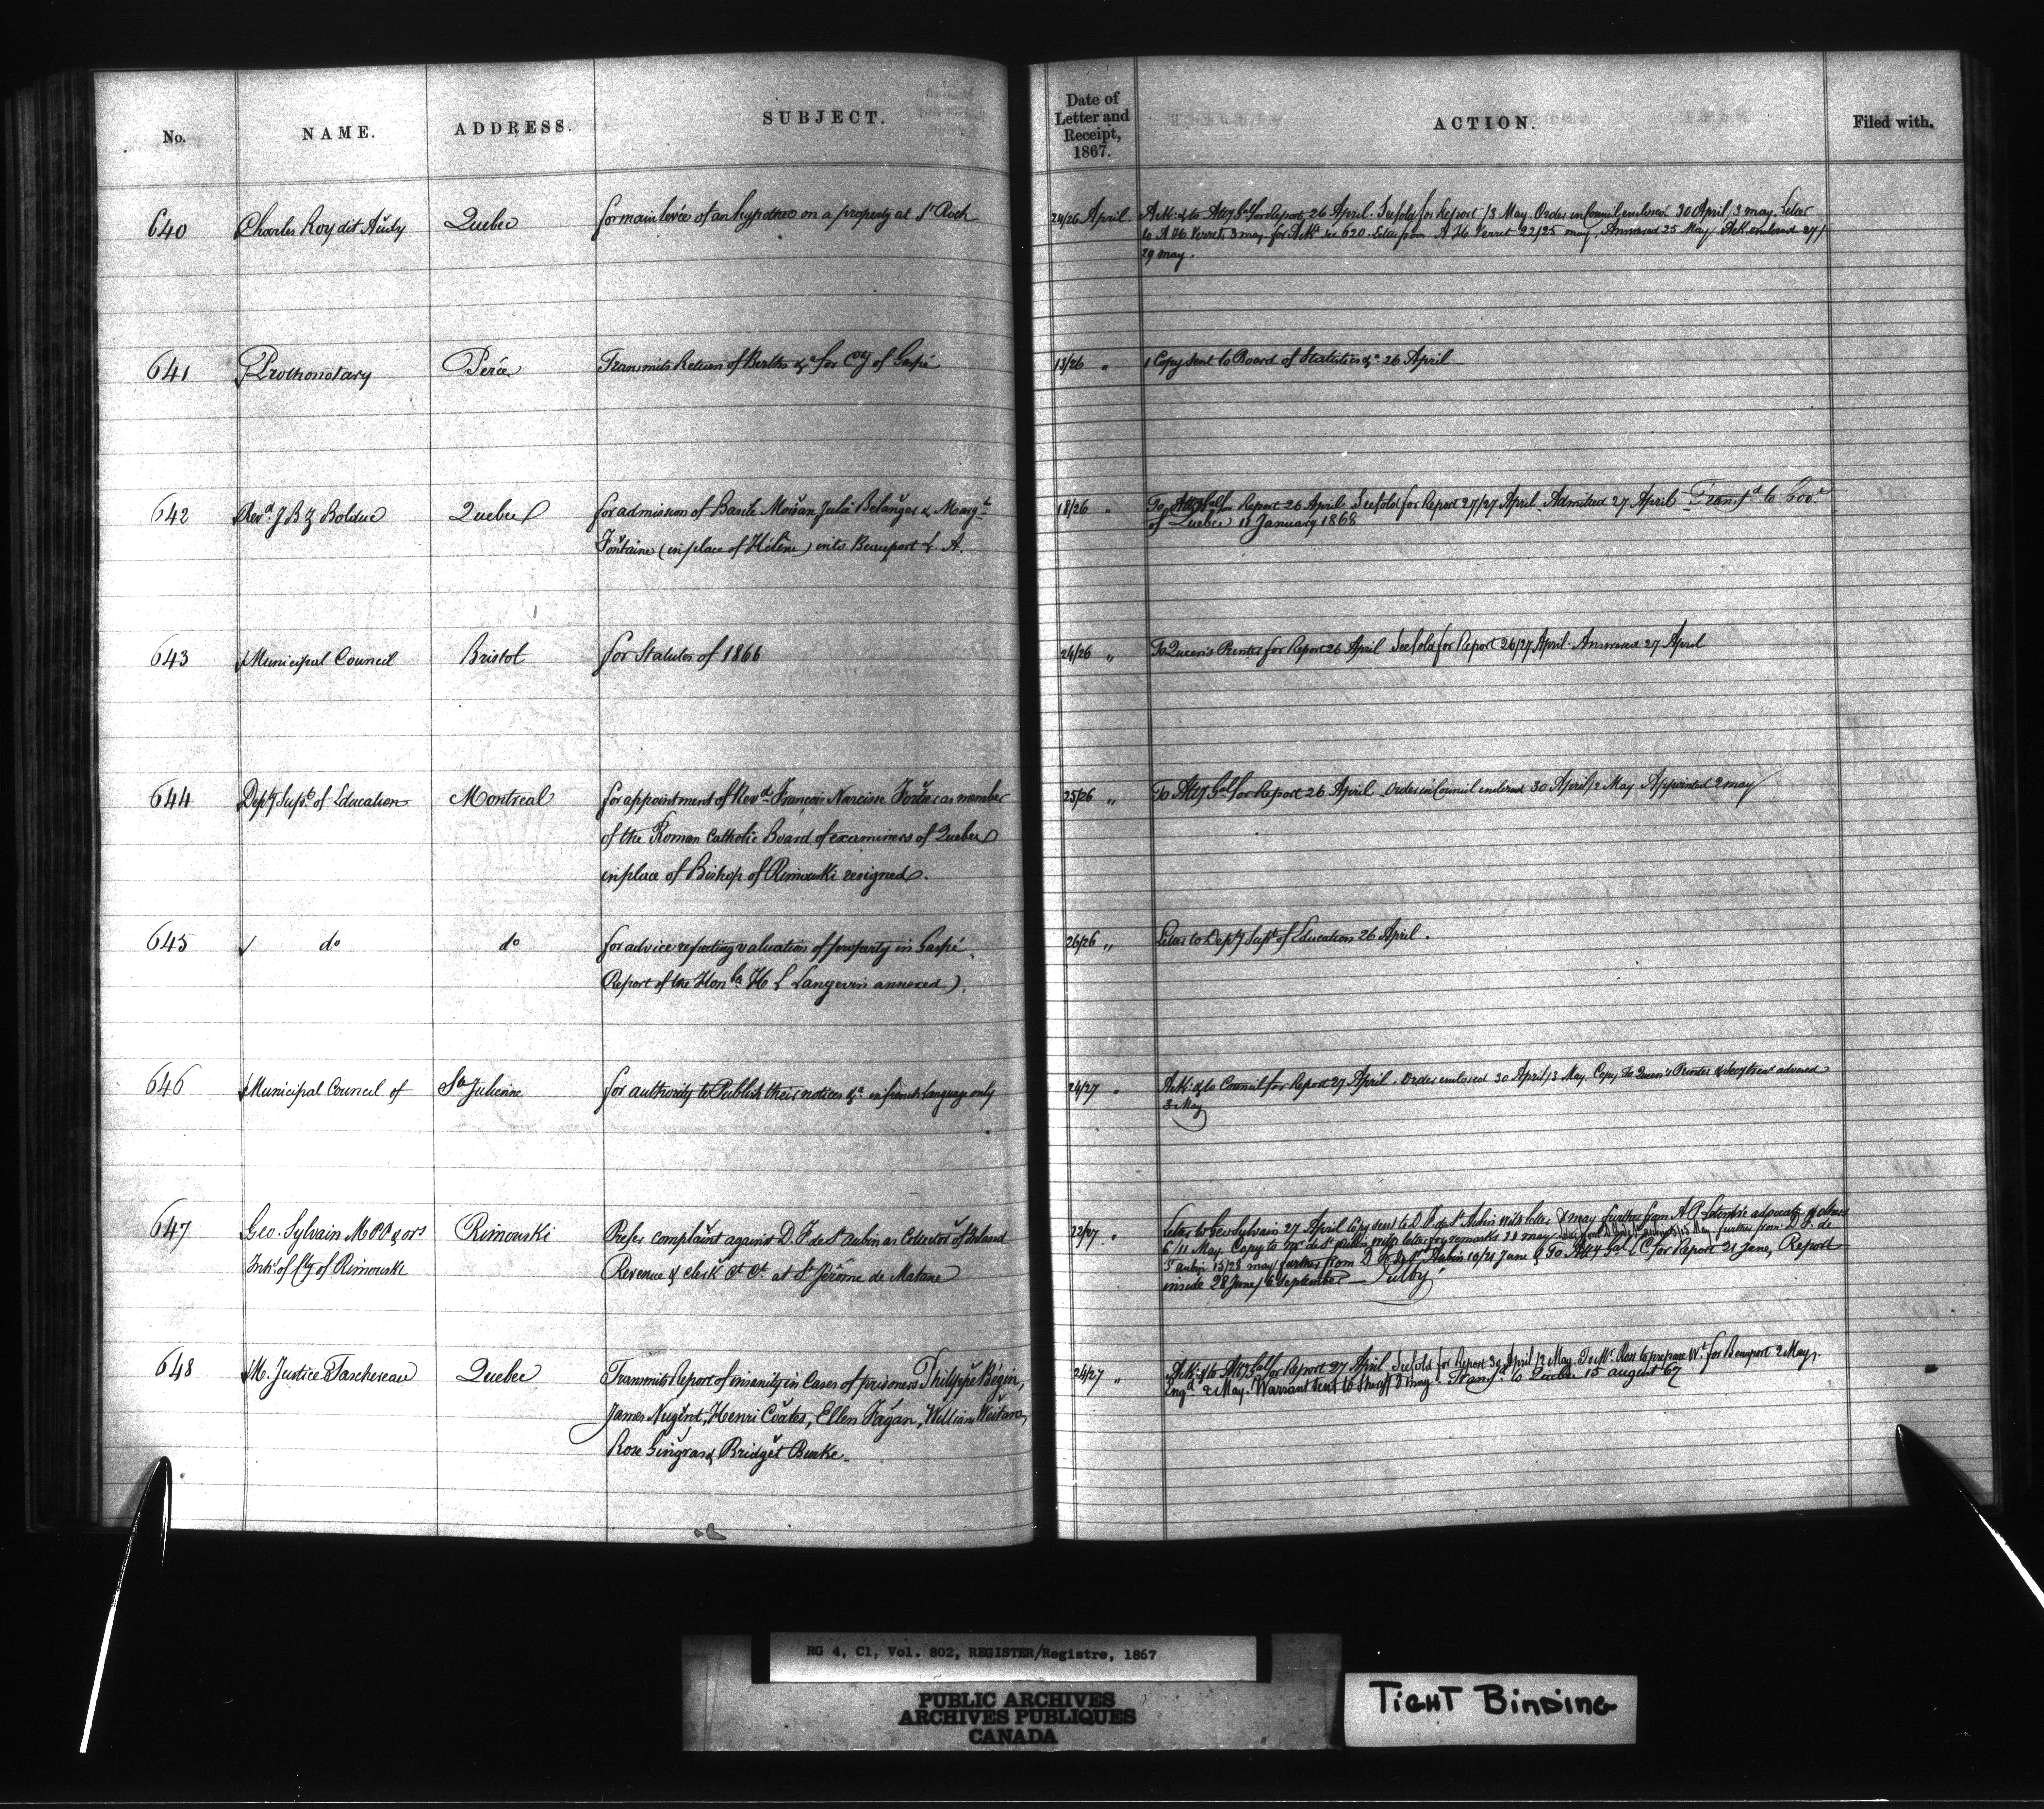 No.
NAME.
ADDRESS.
SUBJECT.
Date of
Letter and
Receipt,
1867.
ACTION.
Filed with.
640
Charles Roy dit Audy
Quebec
for main levée of an hypotheo on a property at St Roch
24/26 April
Ack: & to Atty Gal for Report 26 April. See fold for Report /3 May. Order in Council enclosed 30 April/3 may. Letter
to A H Verret, 3 may for Ack see 620. Letter from A H Verret 22/25 may. Answered 25 May/ Ack enclosed 27/
29 may.
641
Prothonotary
Percé
Transmits Return of Births &c for Cty of Gaspé
13/26 "
1 Copy sent to Board of Statistics &c 26 April
642
Revd. J B Z Bolduc
Quebec
for admission of Basile Moisan Julie Belanger & Marg-te
Fontaine (in place of Hélène) into Beauport L. A.
18/26 "
To Atty Gal for Report 26 April See fold for Report 27/27 April. Admitted 27 April - Transfd to Govt
of Quebec 11 January 1868
643
Municipal Council
Bristol
for Statutes of 1866
24/26 "
To Queen's Printer for Report 26 April See fold for Report 26/27 April. Answered 27 April
644
Depty Supt of Education
Montreal
for appointment of Revd François Narcisse Fortier as member
of the Roman Catholic Board of examiners of Quebec
in place of Bishop of Rimouski resigned.
25/26 "
To Atty Gal for Report 26 April Order in Council enclosed 30 April/2 May Appointed 2 may
645
do
do
for advice respecting valuation of property in Gaspé.
Report of the Honble H L Langevin annexed).
26/26 "
Letter to Depty Supt of Education 26 April.
646
Municipal Council of
Ste Julienne
for authority to Publish their notices &c in french Language only
24/27 "
Ack: & to Council for Report 27 April. Order enclosed 30 April/3 May. Copy to Queen's Printer & Secy treas advised
3 May
647
Geo. Sylvain M P P & ors
Inhts of Cty of Rimouski
Rimouski
Prefer complaint against D. F de St Aubin as Collector of Inland
Revenue & Clerk C Ct. at St Jérôme de Matane
22/27 "
Letter to Geo Sylvain 27 April Copy sent to D F de St Aubin with letter 8 may further from A P Letendre advocate & others
6/11 May. Copy to Mr de St Aubin with letter for remarks 11 may. further from D. F. de
St Aubin 15/28 may further from D F de St Aubin 10/21 June & To Atty Gal L C for Report 21 June, Report
inside 28 June/6 September
648
M. Justice Taschereau
Quebec
Transmits Report of insanity in Cases of prisoners Philippe Bégin,
James Nugent, Henri Coates, Ellen Fagan, William
Rose Gingras & Bridget Burke.
26/27 "
Ack: & to Atty Gal for Report 27 April See fold for Report 30 April/2 May. To Mr Ross to prepare Wt for Beauport 2 May.
Engd 2 May. Warrant sent to Sheriff 3 may. Transfd to Quebec 15 august 67
RG 4, C1, Vol. 802, REGISTER/Registre, 1867
PUBLIC ARCHIVES
ARCHIVES PUBLIQUES
CANADA
TIGHT BINDING